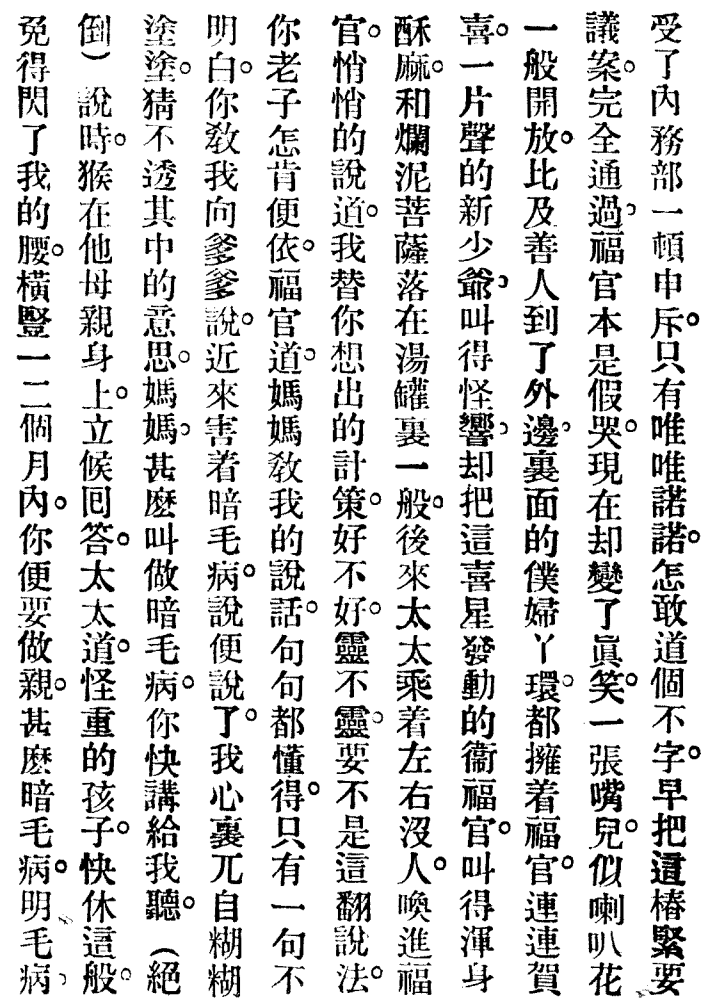 受了內務部一頓申斥。只有唯唯諾諾。怎敢道個不字。早把這樁緊要
議案。完全通過。福官本是假哭。現在却變了眞笑。一張嘴兒。似喇叭花
一般開放。比及善人到了外邊。裏面的僕婦丫環。都擁着福官。連連賀
喜。一片聲的新少爺。叫得怪響。却把這喜星發動的衞福官。叫得渾身
酥麻。和爛泥菩薩落在湯罐裏一般。後來太太乘着左右沒人。喚進福
官。悄悄的說道。我替你想出的計策。好不好。靈不靈。要不是這翻說法。
你老子怎肯便依。福官道。媽媽敎我的說話。句句都懂得。只有一句不
明白。你敎我向爹爹說。近來害着暗毛病。說便說了。我心裏兀自糊糊
塗塗。猜不透其中的意思。媽媽。甚麽叫做暗毛病。你快講給我聽。（絕
倒）說時。猴在他母親身上。立候囘答。太太道。怪重的孩子。快休這般。
免得閃了我的腰。橫豎一二個月內。你便要做親。甚麽暗毛病。明毛病、